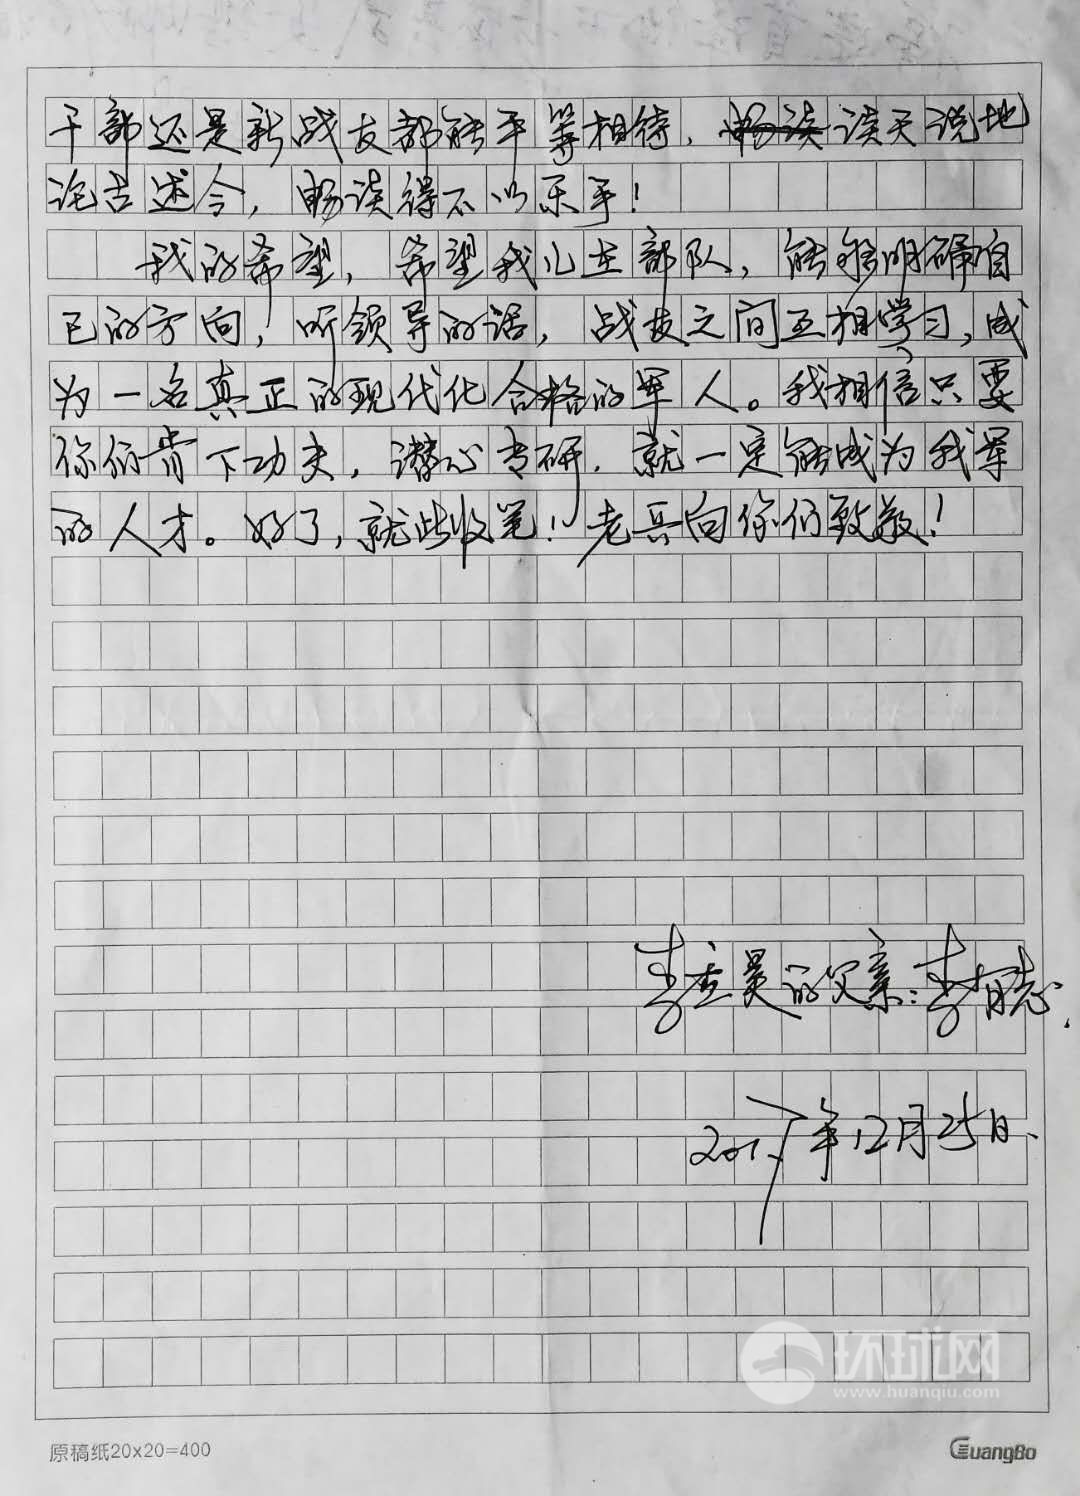 干部还是新战友都能平等相待，畅谈谈天说地
论古述今，畅谈得不以乐乎！
我的希望，希望我儿在部队，能够明确自
己的方向，听领导的话，战友之间互相学习，成
为一名真正的现代化合格的军人。我相信只要
你们肯下功夫，潜心专研，就一定能成为我军
的人才。好了，就此收笔！老兵向你们致敬！
李孟昊的父亲：李有志
2017年12月25日
环球网
www.huanqiu.com
原稿纸20x20=400
GuangBo